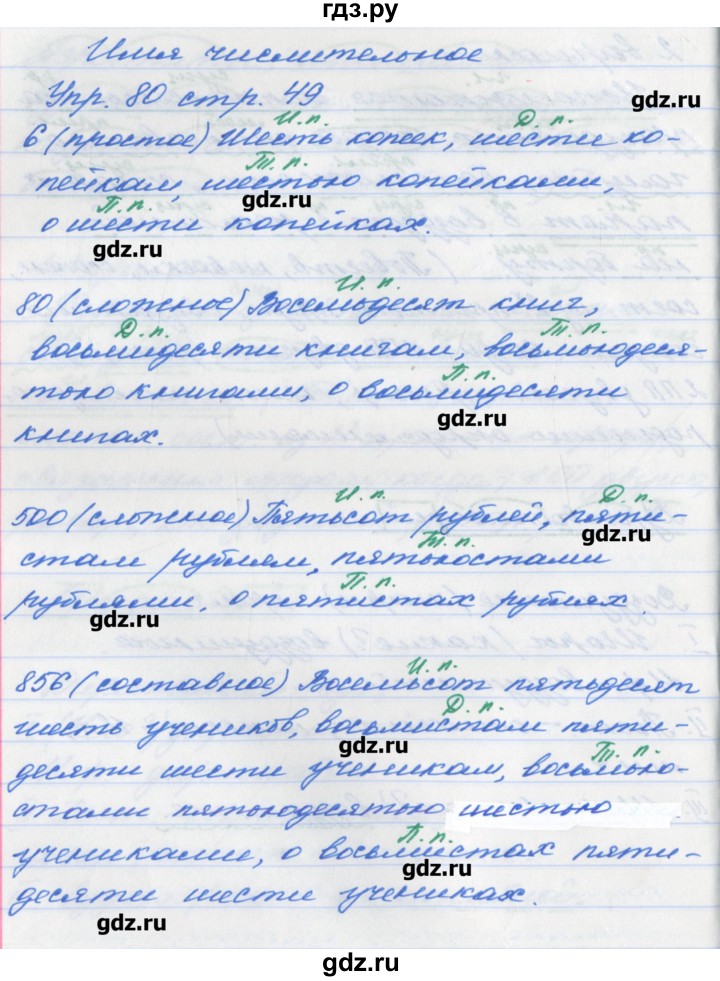 гдз.ру
Имя числительное
Упр. 80 стр. 49
gdz.ru
И.п. Д.п.
6 (простое) Шесть копеек, шести ко-
Т.п.
пейкам, шестью копейками,
gdz.ru
П.п.
о шести копейках.
gdz.ru
И.п.
80 (сложное) Восемьдесят книг,
Д.п. Т.п.
восьмидесяти книгам, восьмьюдеся-
П.п.
тью книгами, о восьмидесяти
gdz.ru
книгах.
И.п. Д.п.
500 (сложное) Пятьсот рублей, пяти-
gdz.ru
Т.п.
стам рублям, пятьюстами
П.п.
рублями, о пятистах рублях.
gdz.ru
И.п.
856 (составное) Восемьсот пятьдесят
Д.п.
шесть учеников, восьмистам пяти-
gdz.ru
Т.п.
десяти шести ученикам, восьмью-
стами пятьюдесятью шестью
П.п.
учениками, о восьмистах пяти-
gdz.ru
десяти шести учениках.
gdz.ru
gdz.ru